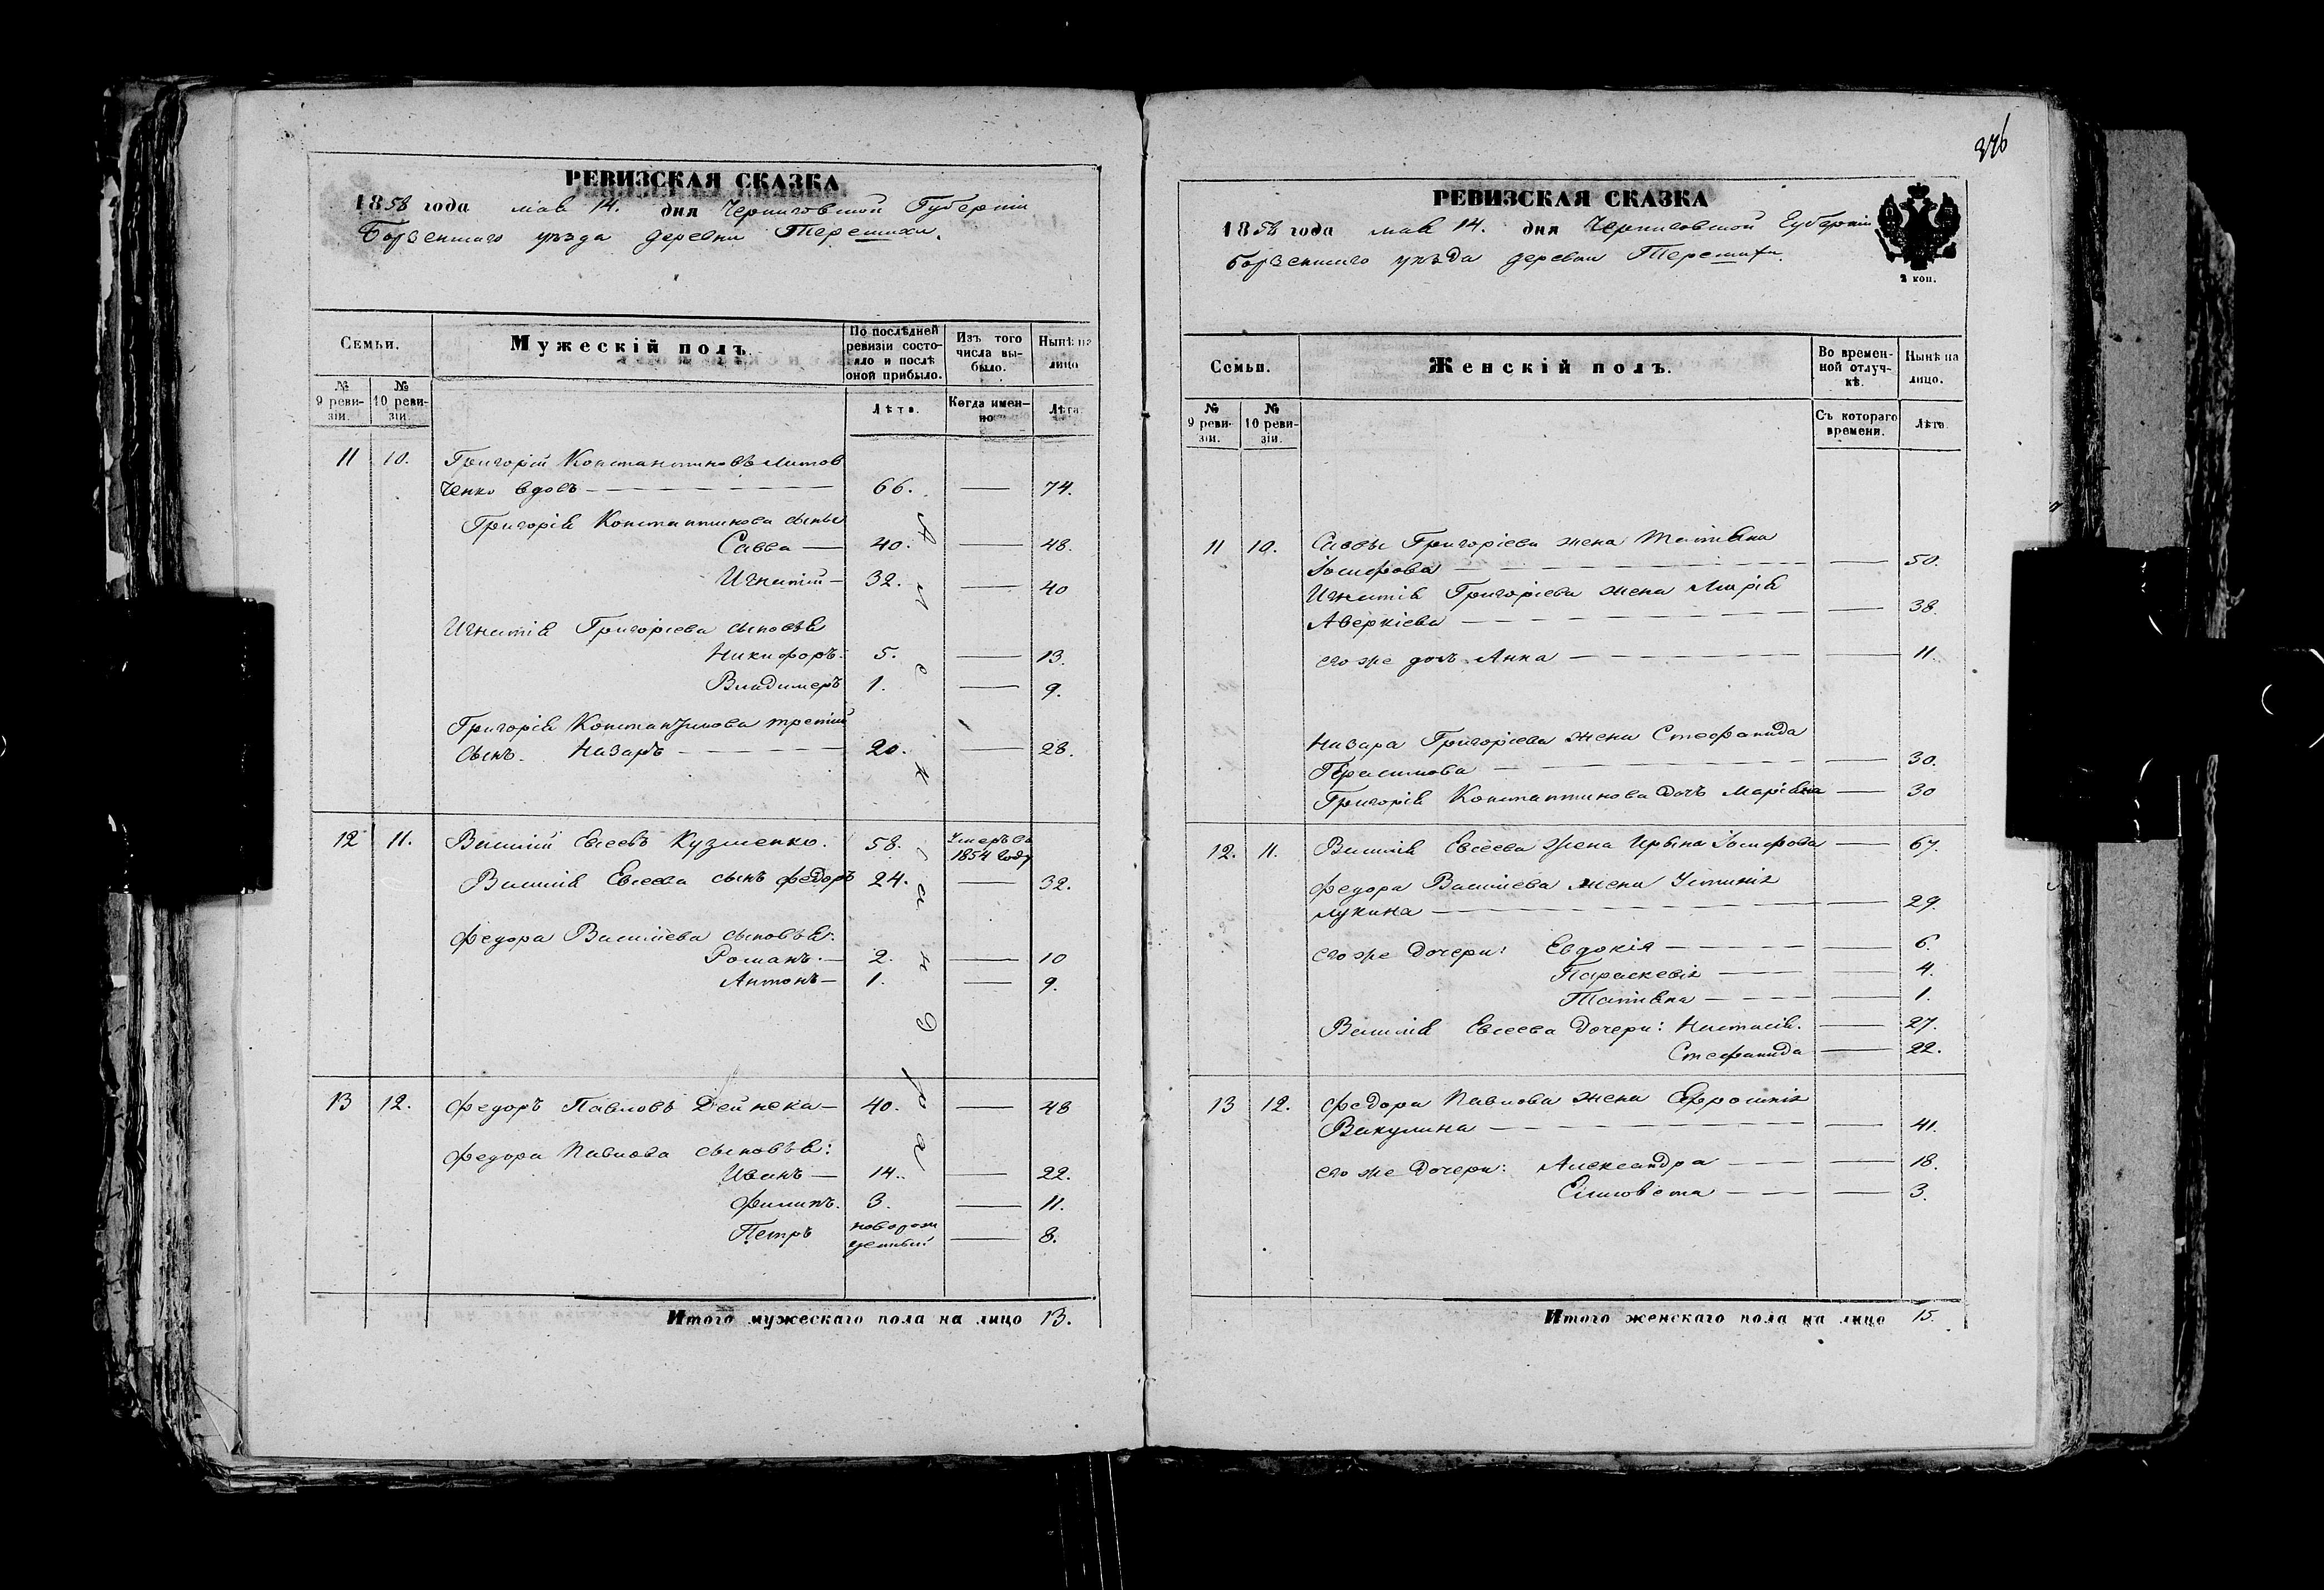 РЕВИЗСКАЯ СКАЗКА
1858 года мая 14. дня Черниговской Губерніи
Борзенскаго уѣзда деревни Терешихи.
Семьи.
Мужескій полъ.
По послѣдней ревизіи состояло и послѣ оной прибыло.
Изъ того числа выбыло.
Нынѣ на лицо
№ 9 ревизіи.
№ 10 ревизіи.
Лѣта.
Когда именно
Лѣта.
11 10. Григорій Константиновъ Литов
ченко вдовъ — 66. — 74.
Григорія Константинова сыны
Савва — 40. — 48.
Игнатій — 32. — 40
Игнатія Григоріева сыновья
Никифоръ. 5. — 13.
Владимеръ 1. — 9.
Григорія Константинова третій
сынъ Назаръ — 20. — 28.
12 11. Василій Евсеевъ Кузменко. 58. Умеръ въ
1854 году
Василія Евсеева сынъ Федоръ 24. — 32.
Федора Василіева сыновья:
Романъ. — 2. — 10
Антонъ — 1. — 9.
13 12. Федоръ Павловъ Дейнека — 40. — 48
Федора Павлова сыновья:
Иванъ — 14. — 22.
Филипъ. 3. — 11.
Петръ новорож
денный — 8.
Итого мужескаго пола на лицо 13.
376
РЕВИЗСКАЯ СКАЗКА
1858 года мая 14. дня Черниговской Губерніи
Борзенскаго уѣзда деревни Терешихи.
2 коп.
Семьи.
Женскій полъ.
Во временной отлучкѣ.
Нынѣ на лицо.
№ 9 ревизіи.
№ 10 ревизіи.
Съ котораго времени.
Лѣта.
11 10. Саввы Григоріева жена Татіяна
Іосифова — — 50.
Игнатія Григоріева жена Марія
Аверкіева — — 38.
его же дочь Анна — — 11.
Назара Григоріева жена Стефанида
Герасимова — — 30.
Григорія Константинова дочь — 30
12. 11. Василія Евсеева жена Ирына Іосифова — 67.
Федора Василіева жена Устинія
Лукина — — 29.
его же дочери: Евдокія — — 6.
Параскевія — — 4.
Татіяна — — 1.
Василія Евсеева дочери: Настасія. — 27.
Стефанида — 22.
13 12. Федора Павлова жена Ефросинія
Вакулина — — 41.
его же дочери: Александра — — 18.
Елисовета — — 3.
Итого женскаго пола на лицо 15.